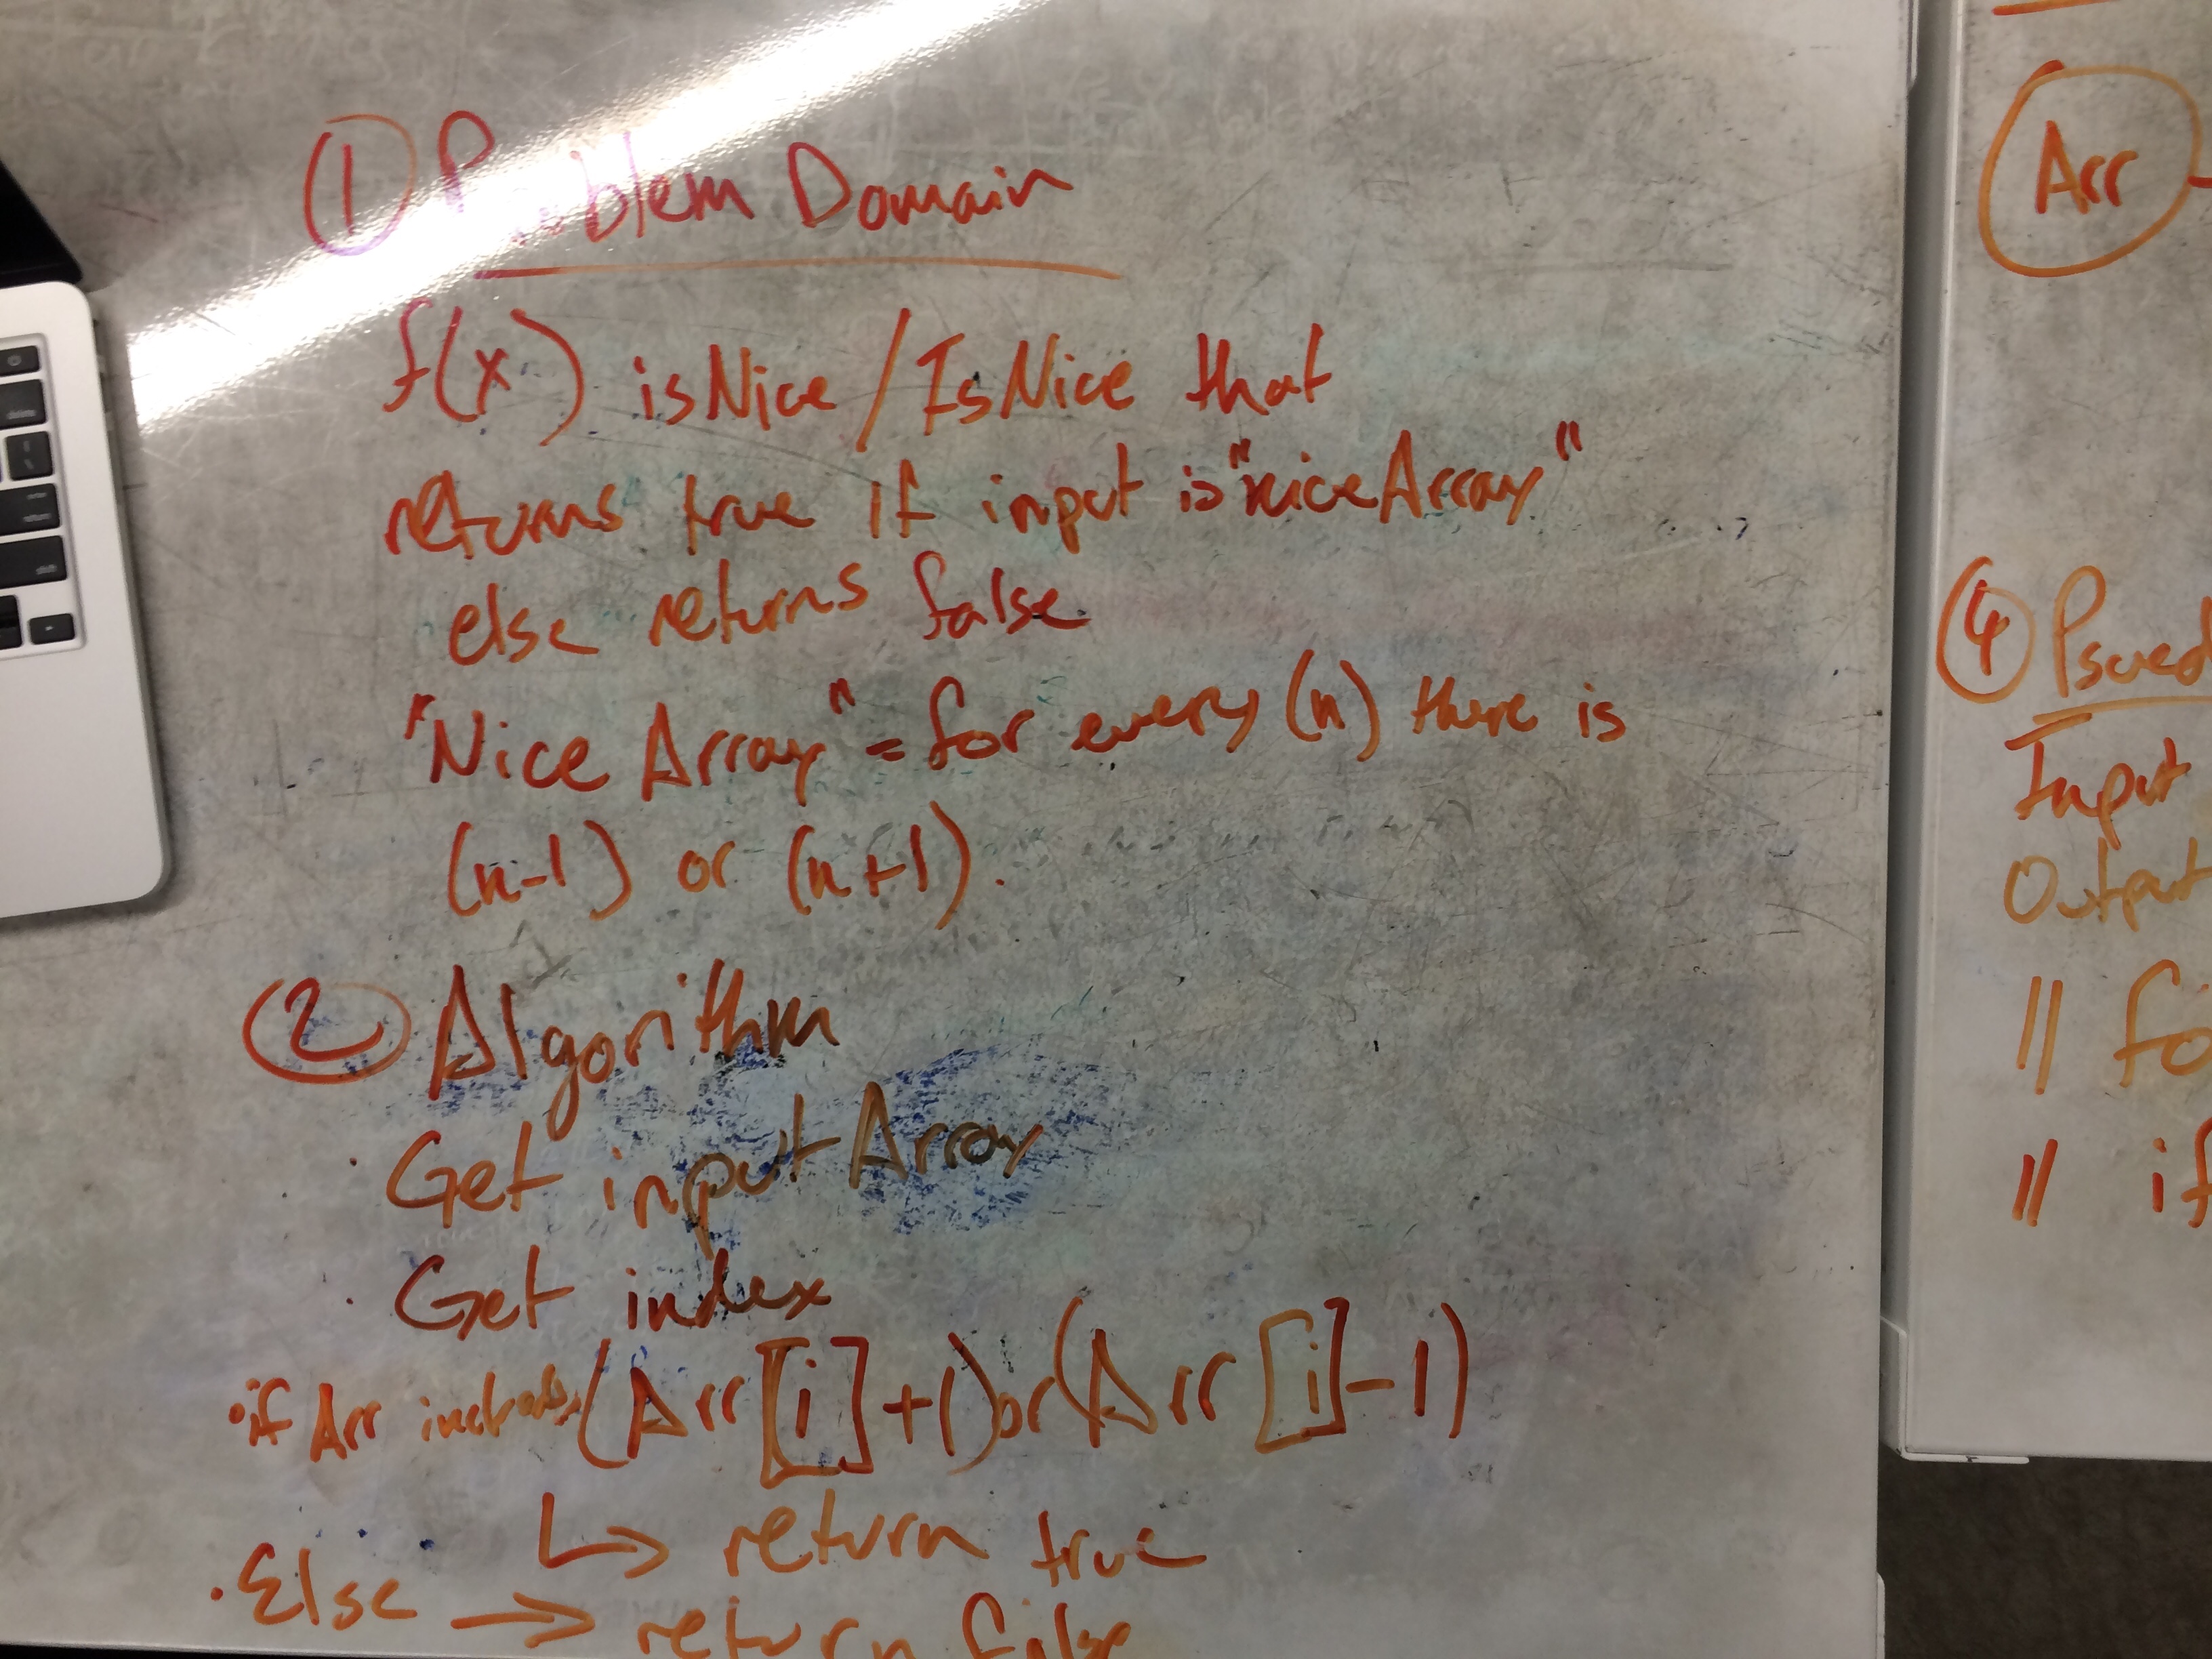 ① Problem Domain
f(x) isNice/IsNice that
returns true if input is "niceArray"
else returns false
"Nice Array" = for every (n) there is
(n-1) or (n+1).
② Algorithm
· Get input Array
· Get index
· if Arr includes (Arr[i]+1) or (Arr[i]-1)
↳ return true
· Else → return false
Arr
④ Psued
Input
Output
// fo
// if